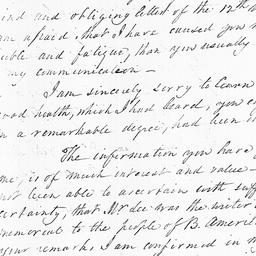 ind and obliging letter of the 12th
am afraid that I have caused you
uble and fatigue, than you usually
my communication —
I am sincerely sorry to learn
ood health, which I had heard, you
n a remarkable degree, had been
The information you have
me, is of much interest and value —
not been able to ascertain with
certainty, that Mr Lee was the writer
memorial to the people of B. Ameri
your remarks I am confirmed in